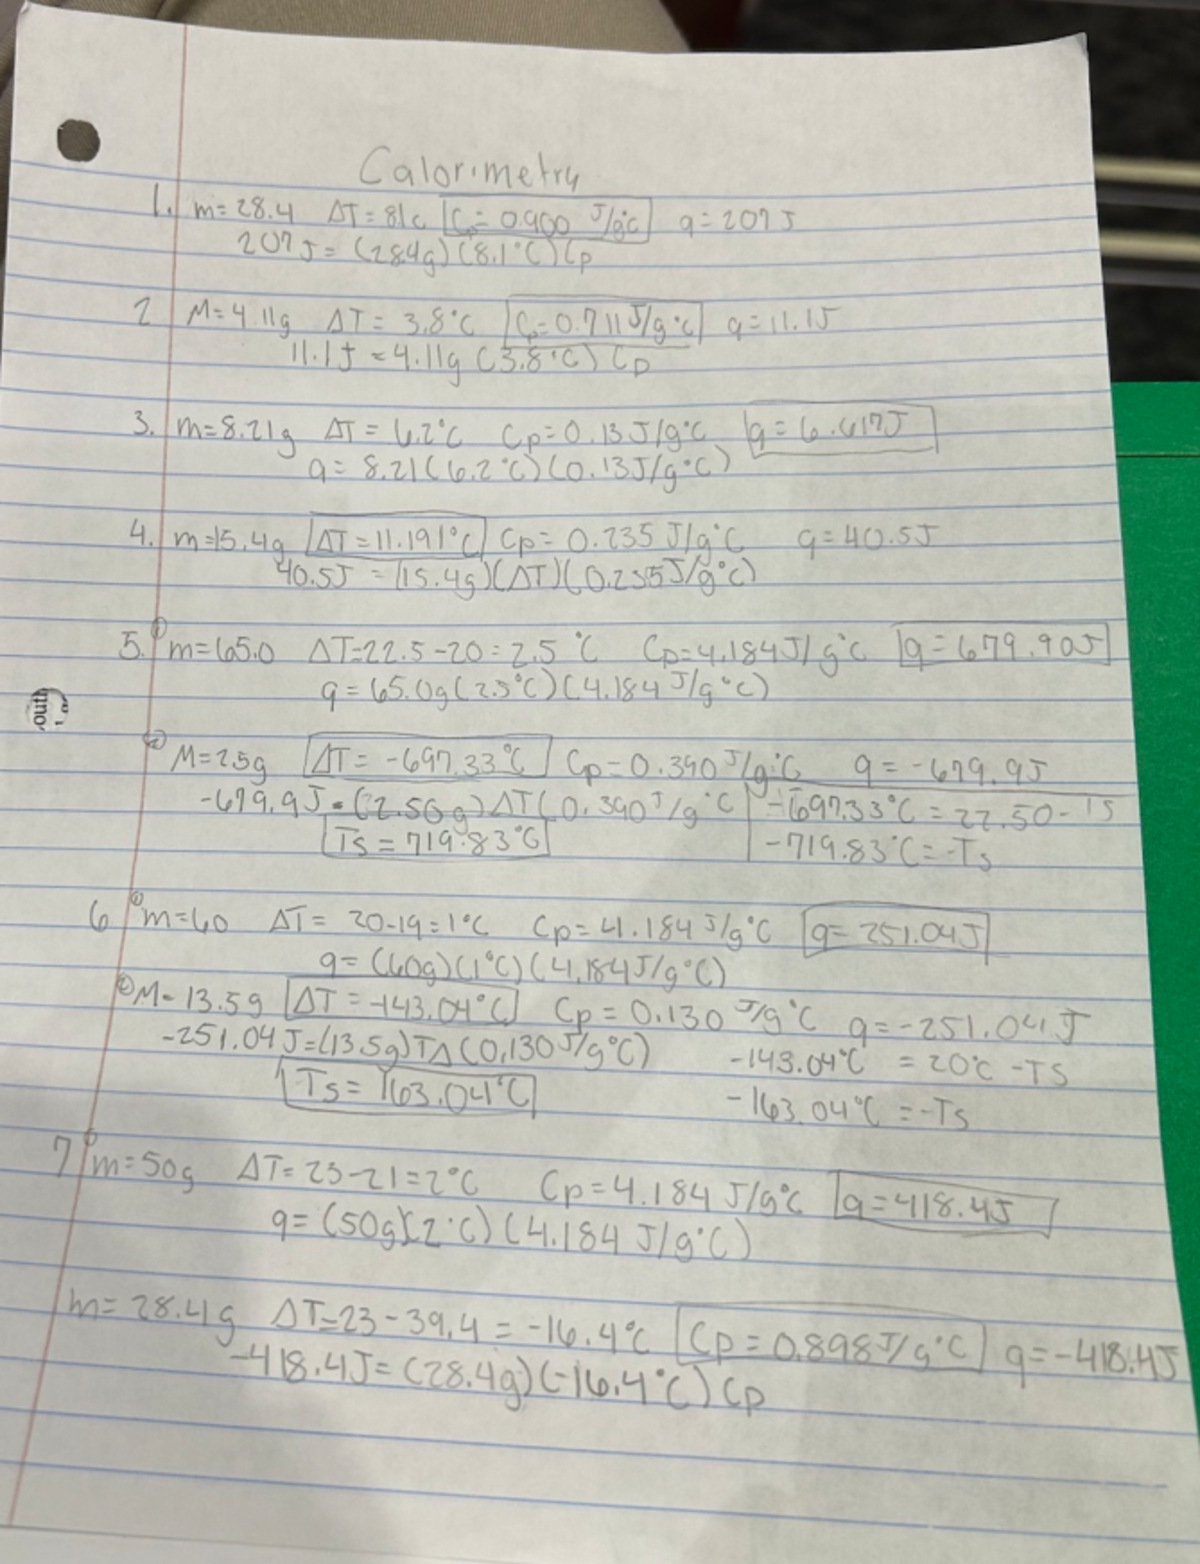 Calorimetry
1. m=28.4 ΔT=81c Cp=0.900 J/g°c q=207J
207J=(284g)(8.1°C)Cp
2 M=4.11g ΔT=3.8°C Cp=0.711J/g°c q=11.1J
11.1J=4.11g(3.8°C)Cp
3. m=8.21g ΔT=6.2°C Cp=0.13J/g°C q=6.617J
q=8.21(6.2°C)(0.13J/g°C)
4. m=15.4g ΔT=11.191°C Cp=0.235J/g°C q=40.5J
40.5J=(15.4g)(ΔT)(0.235J/g°C)
5. ① m=65.0 ΔT=22.5-20=2.5°C Cp=4.184J/g°C q=679.90J
q=65.0g(2.5°C)(4.184J/g°C)
② M=2.5g ΔT=-697.33°C Cp=0.390J/g°C q=-679.9J
-679.9J=(2.50g)ΔT(0.390J/g°C -697.33°C=22.50-TS
Ts=719.83°C -719.83°C=-Ts
6 ① m=60 ΔT=20-19=1°C Cp=4.184J/g°C q=251.04J
q=(60g)(1°C)(4.184J/g°C)
② M=13.5g ΔT=-143.04°C Cp=0.130J/g°C q=-251.04J
-251.04J=(13.5g)TΔ(0.130J/g°C) -143.04°C=20°C-TS
Ts=163.04°C -163.04°C=-Ts
7 ① m=50g ΔT=23-21=2°C Cp=4.184J/g°C q=418.4J
q=(50g)(2°C)(4.184J/g°C)
m=28.4g ΔT=23-39.4=-16.4°C Cp=0.898J/g°C q=-418.4J
-418.4J=(28.4g)(-16.4°C)Cp